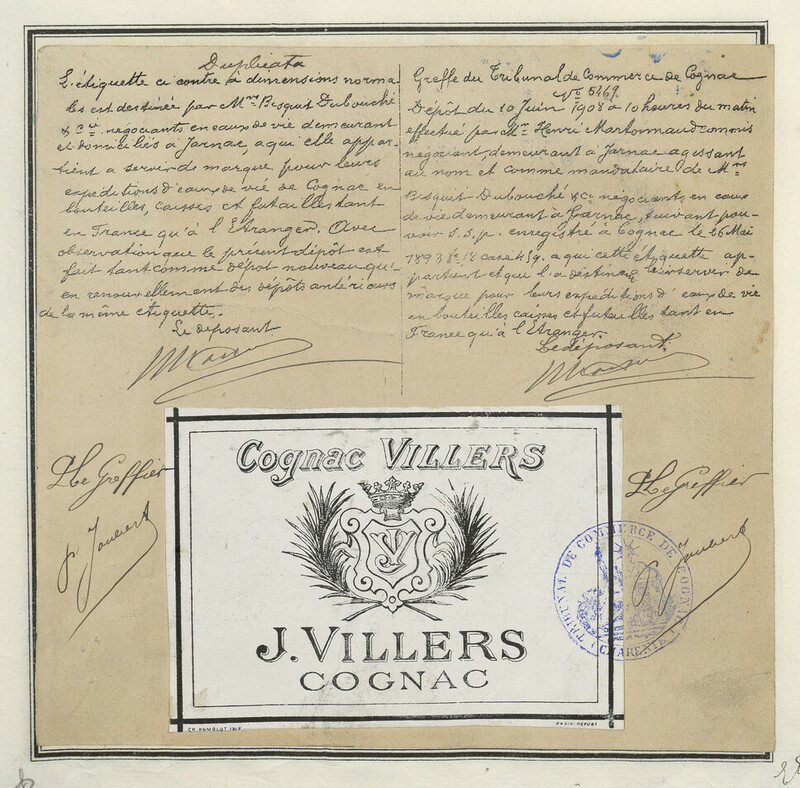 Duplicata
L'étiquette ci contre à dimensions norma-
les est destinée par Mrs Bisquit Dubouché
& Cie négociants en eaux de vie demeurant
et domiciliés à Jarnac, a qui elle appar-
tient a servir de marque pour leurs
expéditions d'eaux de vie de Cognac en
bouteilles, caisses et futailles tant
en France qu'à l'Etranger. Avec
observation que le présent dépôt est
fait tant comme dépôt nouveau qu'
en renouvellement des dépôts antérieurs
de la même étiquette.
Le déposant
Greffe du Tribunal de Commerce de Cognac
No 5469.
Dépôt du 10 Juin 1908 a 10 heures du matin
effectué par Mr Henri Martonnaud commis
négociant, demeurant à Jarnac agissant
au nom et comme mandataire de Mrs
Bisquit Dubouché & Cie négociants en eaux
de vie demeurant à Jarnac, suivant pou-
voir S.S.p. enregistré à Cognac le 26 Mai
1893 a qui cette étiquette ap-
partient et qui l'a destinée
marque pour leurs expéditions d'eaux de vie
en bouteilles caisses et futailles tant en
France qu'à l'Etranger.
Le déposant.
Le Greffier
P. Joubert
Le Greffier
P. Joubert
Cognac VILLERS
JV
J. VILLERS
COGNAC
TRIBUNAL DE COMMERCE DE COGNAC
(CHARENTE)